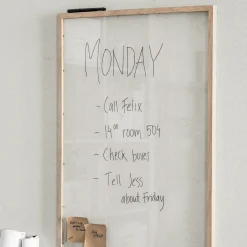 MONDAY
- Call Felix
- 14⁰⁰ room 504
- Check buses
- Tell Jess
about Friday